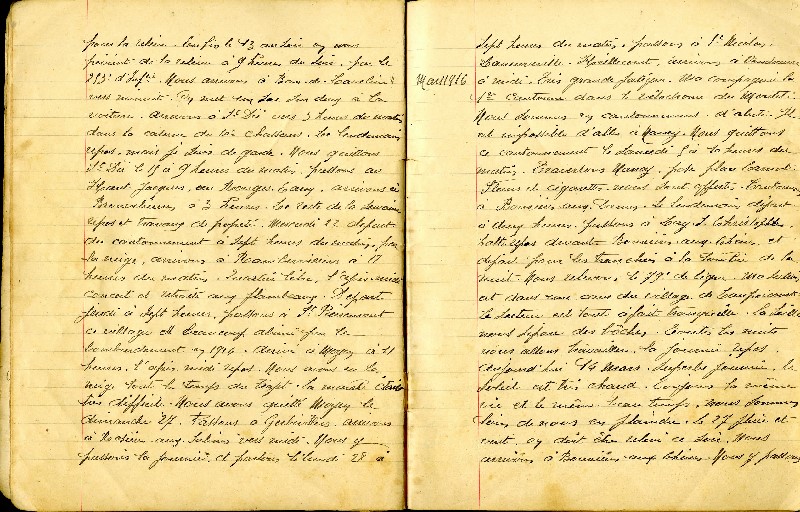 pour la relève. Enfin le 13 au soir on nous
prévient de la relève à 9 heures du soir, par le
213e d'Infie. Nous arrivons à Ban-de-Laveline
vers minuit. On met les sacs sur deux à la
voiture. arrivons à St Dié vers 3 heures du matin
dans la caserne du 10e chasseurs. Le lendemain
repos, mais je suis de garde. Nous quittons
St Dié le 15 à 9 heures du matin. passons au
Haut Jacques, au Rouges-Eaux, arrivons à
à 3 heures. Le reste de la semaine
repos et travaux de propreté. Mercredi 22 départ
du cantonnement à sept heures du matin, par
la neige, arrivons à Rambervillers à 11
heures du matin. Quartier libre, l'après-midi
concert et retraite aux flambeaux. Départ
jeudi à sept heures, passons à St Pierremont
ce village est beaucoup abimé par le
bombardement en 1914. arrivé à Moyen à 11
heures. l'après-midi repos. Nous avons eu la
neige tout le temps du trajet. la marche était
très difficile. Nous avons quitté Moyen le
dimanche 27. Passons à Gerbéviller, arrivons
à Rosière aux Salines vers midi. Nous y
passons la journée et partons le lundi 28 à
sept heures du matin, passons à St Nicolas,
Laneuveville, arrivons à
à midi. Très grande fatigue. Ma compagnie la
1re cantonne dans le vélodrome du
Nous sommes en cantonnement d'alerte. Il
est impossible d'aller à Nancy. Nous quittons
ce cantonnement le samedi 5 à 10 heures du
matin. Traversons Nancy, par place Carnot.
Fleurs et cigarettes nous sont offerts. Cantonnons
à Bouxières aux Chênes. Le lendemain départ
à cinq heures. passons à Lay St Christophe,
halte repas devant Bouxières aux Chênes, et
départ pour les tranchées à la tombée de la
nuit. Nous relevons le 79e de ligne. Ma section
est dans une cave du village de
Le secteur est tout à fait tranquille. La Seille
nous sépare des bôches. Toutes les nuits
nous allons travailler. la journée repos.
aujourd'hui 14 Mars. Superbe journée, le
soleil est très chaud. Toujours la même
vie et le même beau temps, nous sommes
loin de nous en plaindre. Le 27 pluie et
vent, on doit être relevé ce soir. Nous
arrivons à Bouxières-aux-Chênes. Nous y passons
Mars 1916